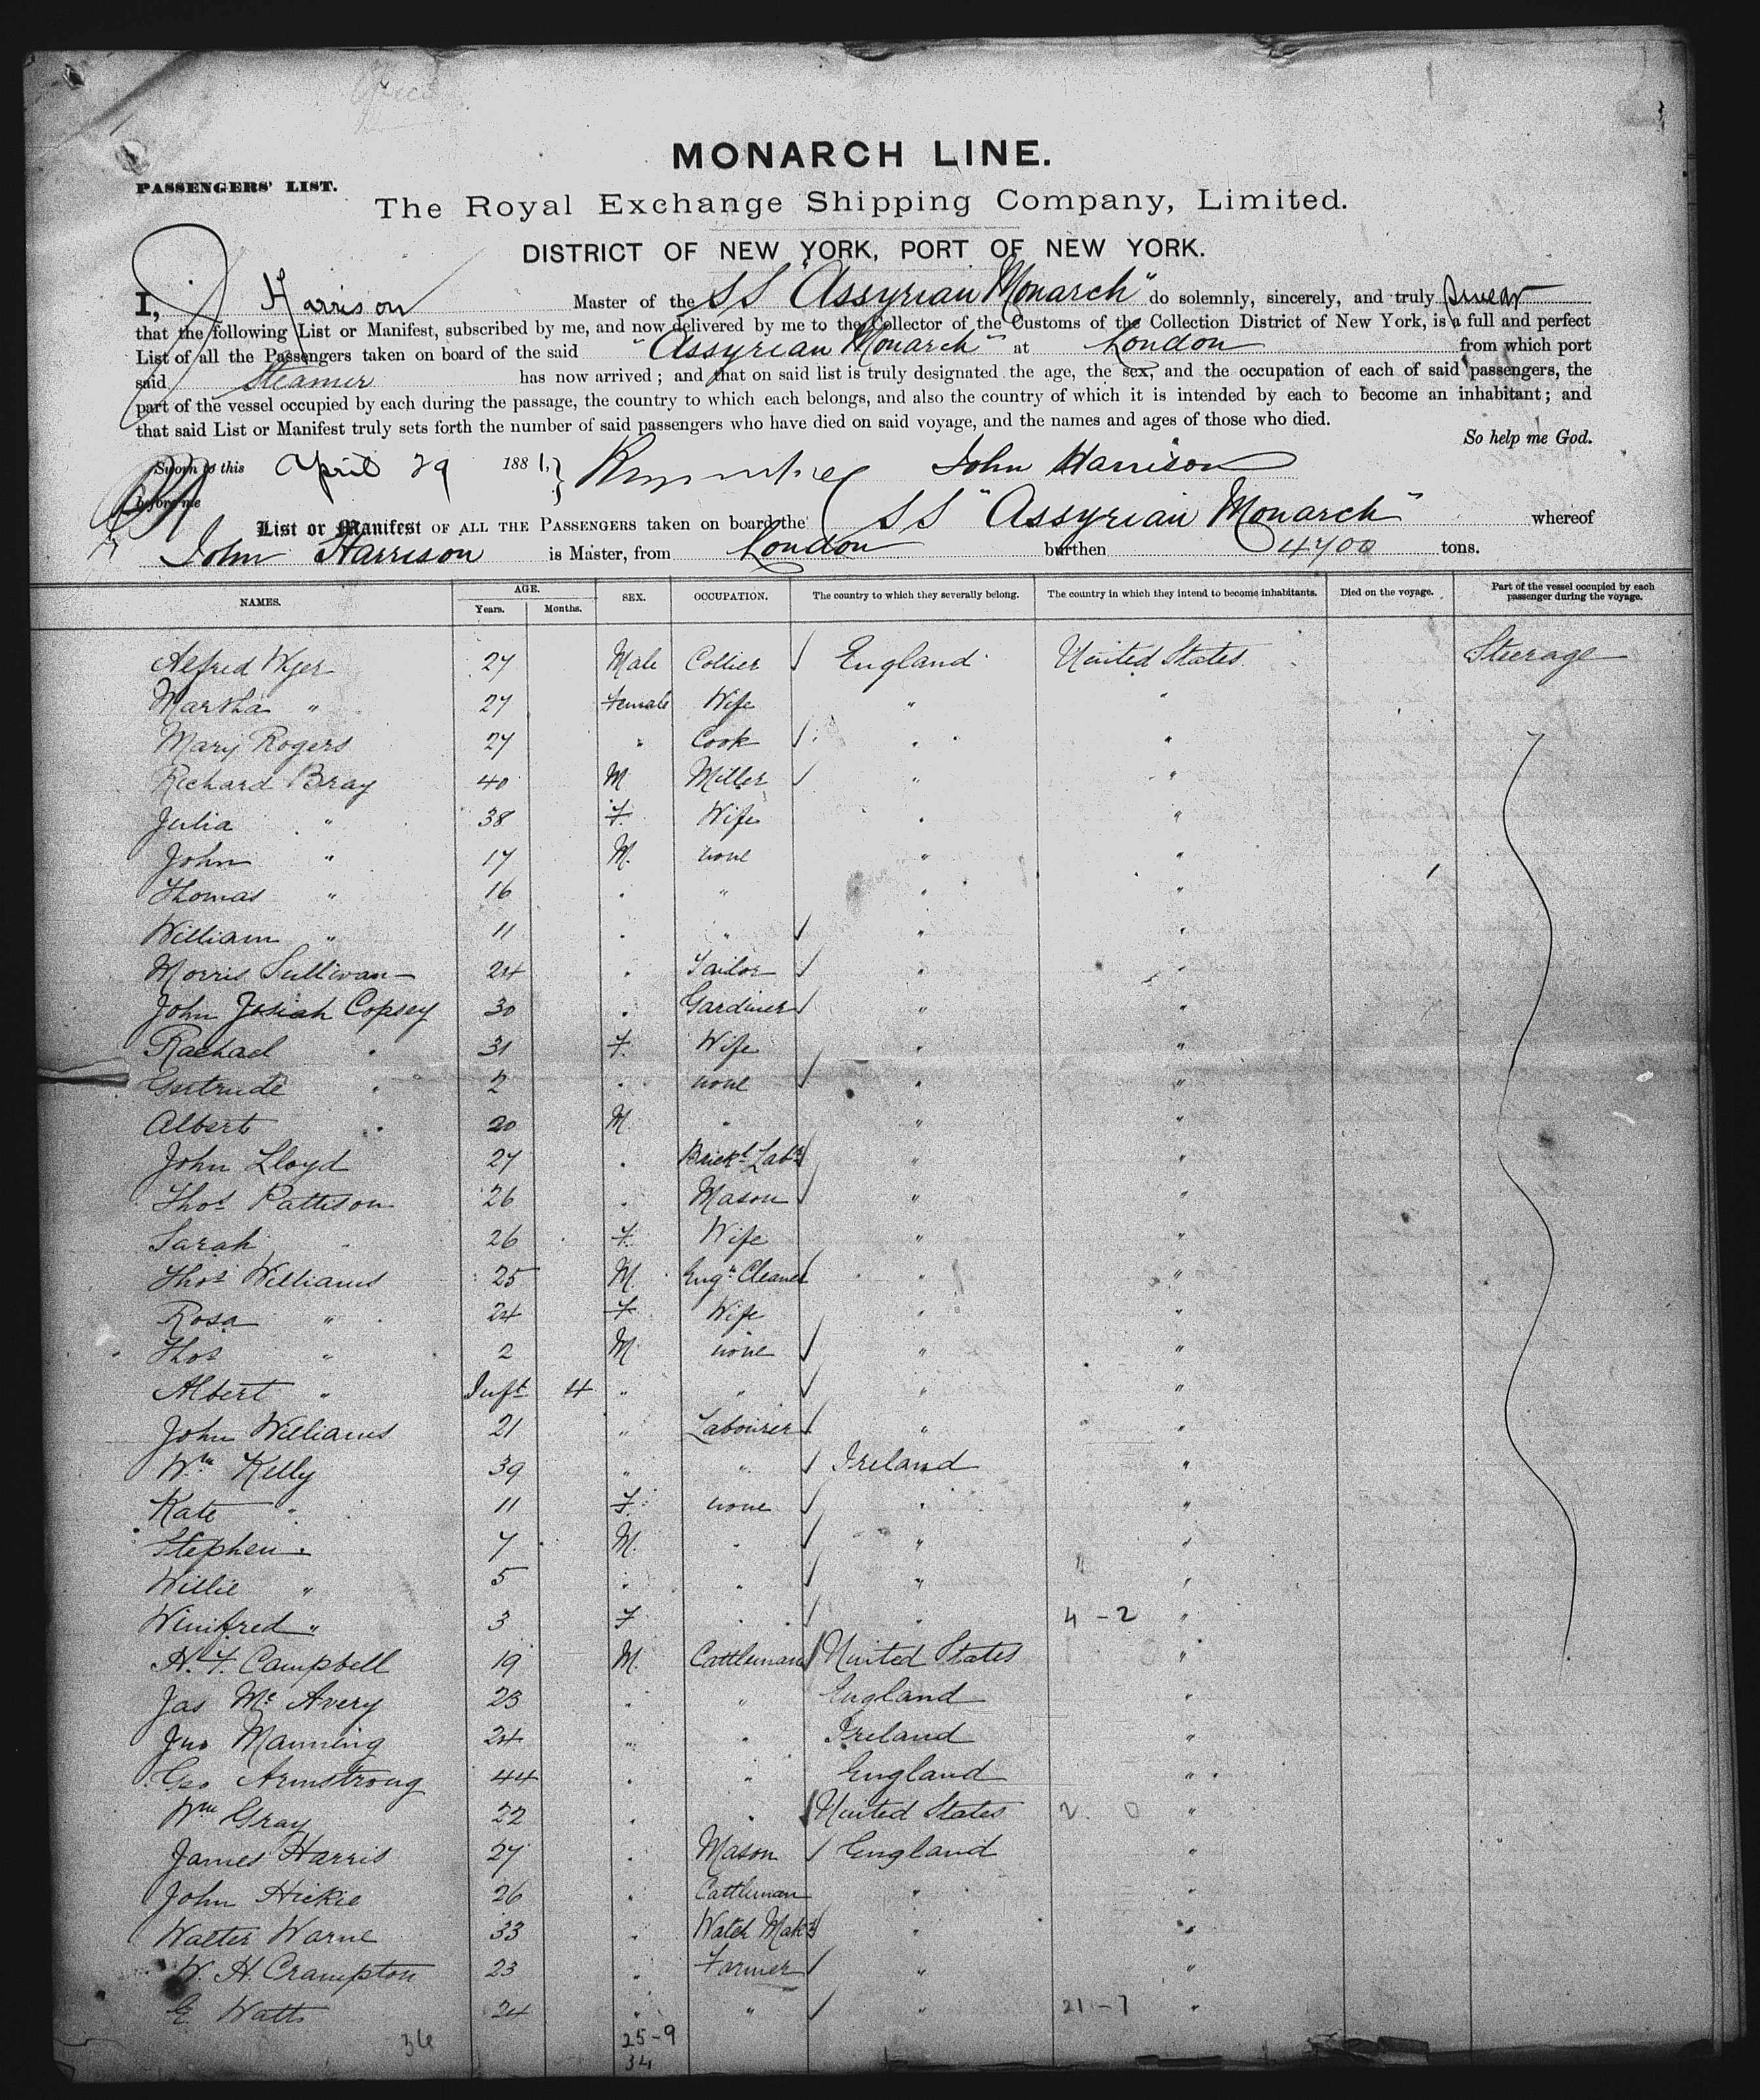 PASSENGERS' LIST.
MONARCH LINE.
The Royal Exchange Shipping Company, Limited.
DISTRICT OF NEW YORK, PORT OF NEW YORK.
I, J Harrison Master of the SS "Assyrian Monarch" do solemnly, sincerely, and truly swear
that the following List or Manifest, subscribed by me, and now delivered by me to the Collector of the Customs of the Collection District of New York, is a full and perfect
List of all the Passengers taken on board of the said "Assyrian Monarch" at London from which port
said Steamer has now arrived; and that on said list is truly designated the age, the sex, and the occupation of each of said passengers, the
part of the vessel occupied by each during the passage, the country to which each belongs, and also the country of which it is intended by each to become an inhabitant; and
that said List or Manifest truly sets forth the number of said passengers who have died on said voyage, and the names and ages of those who died.
So help me God.
Sworn to this April 29 1881, } John Harrison
before me
List or Manifest OF ALL THE PASSENGERS taken on board the SS "Assyrian Monarch" whereof
John Harrison is Master, from London burthen 4700 tons.
NAMES. AGE. Years. Months. SEX. OCCUPATION. The country to which they severally belong. The country in which they intend to become inhabitants. Died on the voyage. Part of the vessel occupied by each passenger during the voyage.
Alfred Wyer 27 Male Collier England United States Steerage
Martha " 27 Female Wife " "
Mary Rogers 27 " Cook " "
Richard Bray 40 M Miller " "
Julia " 38 F. Wife " "
John " 17 M. none " "
Thomas " 16 " " " "
William " 11 " " " "
Morris Sullivan 24 " Tailor " "
John Josiah Copsey 30 " Gardiner " "
Rachael " 31 F. Wife " "
Gertrude " 2 " none " "
Albert " 20 M " " "
John Lloyd 27 " Brickl Labr " "
Thos Pattison 26 " Mason " "
Sarah " 26 F. Wife " "
Thos Williams 25 M. Engn Cleaner " "
Rosa " 24 F Wife " "
Thos " 2 M none " "
Albert " Inft 4 " " " "
John Williams 21 " Labourer " "
Wm Kelly 39 " " Ireland "
Kate " 11 F. none " "
Stephen " 7 M. " " "
Willie " 5 " " " "
Winifred " 3 F " " 4 - 2 "
H. F. Campbell 19 M. Cattleman United States "
Jas Mc Avery 23 " " England "
Jno Manning 24 " " Ireland "
Geo Armstrong 44 " " England "
Wm Gray 22 " " United States 2. 0 "
James Harris 27 " Mason England "
John Hickie 26 " Cattleman " "
Walter Warne 33 " Watch Makr " "
W. H. Crampton 23 " Farmer " "
E Watts 24 " " " 21 - 7 "
36 25-9
34